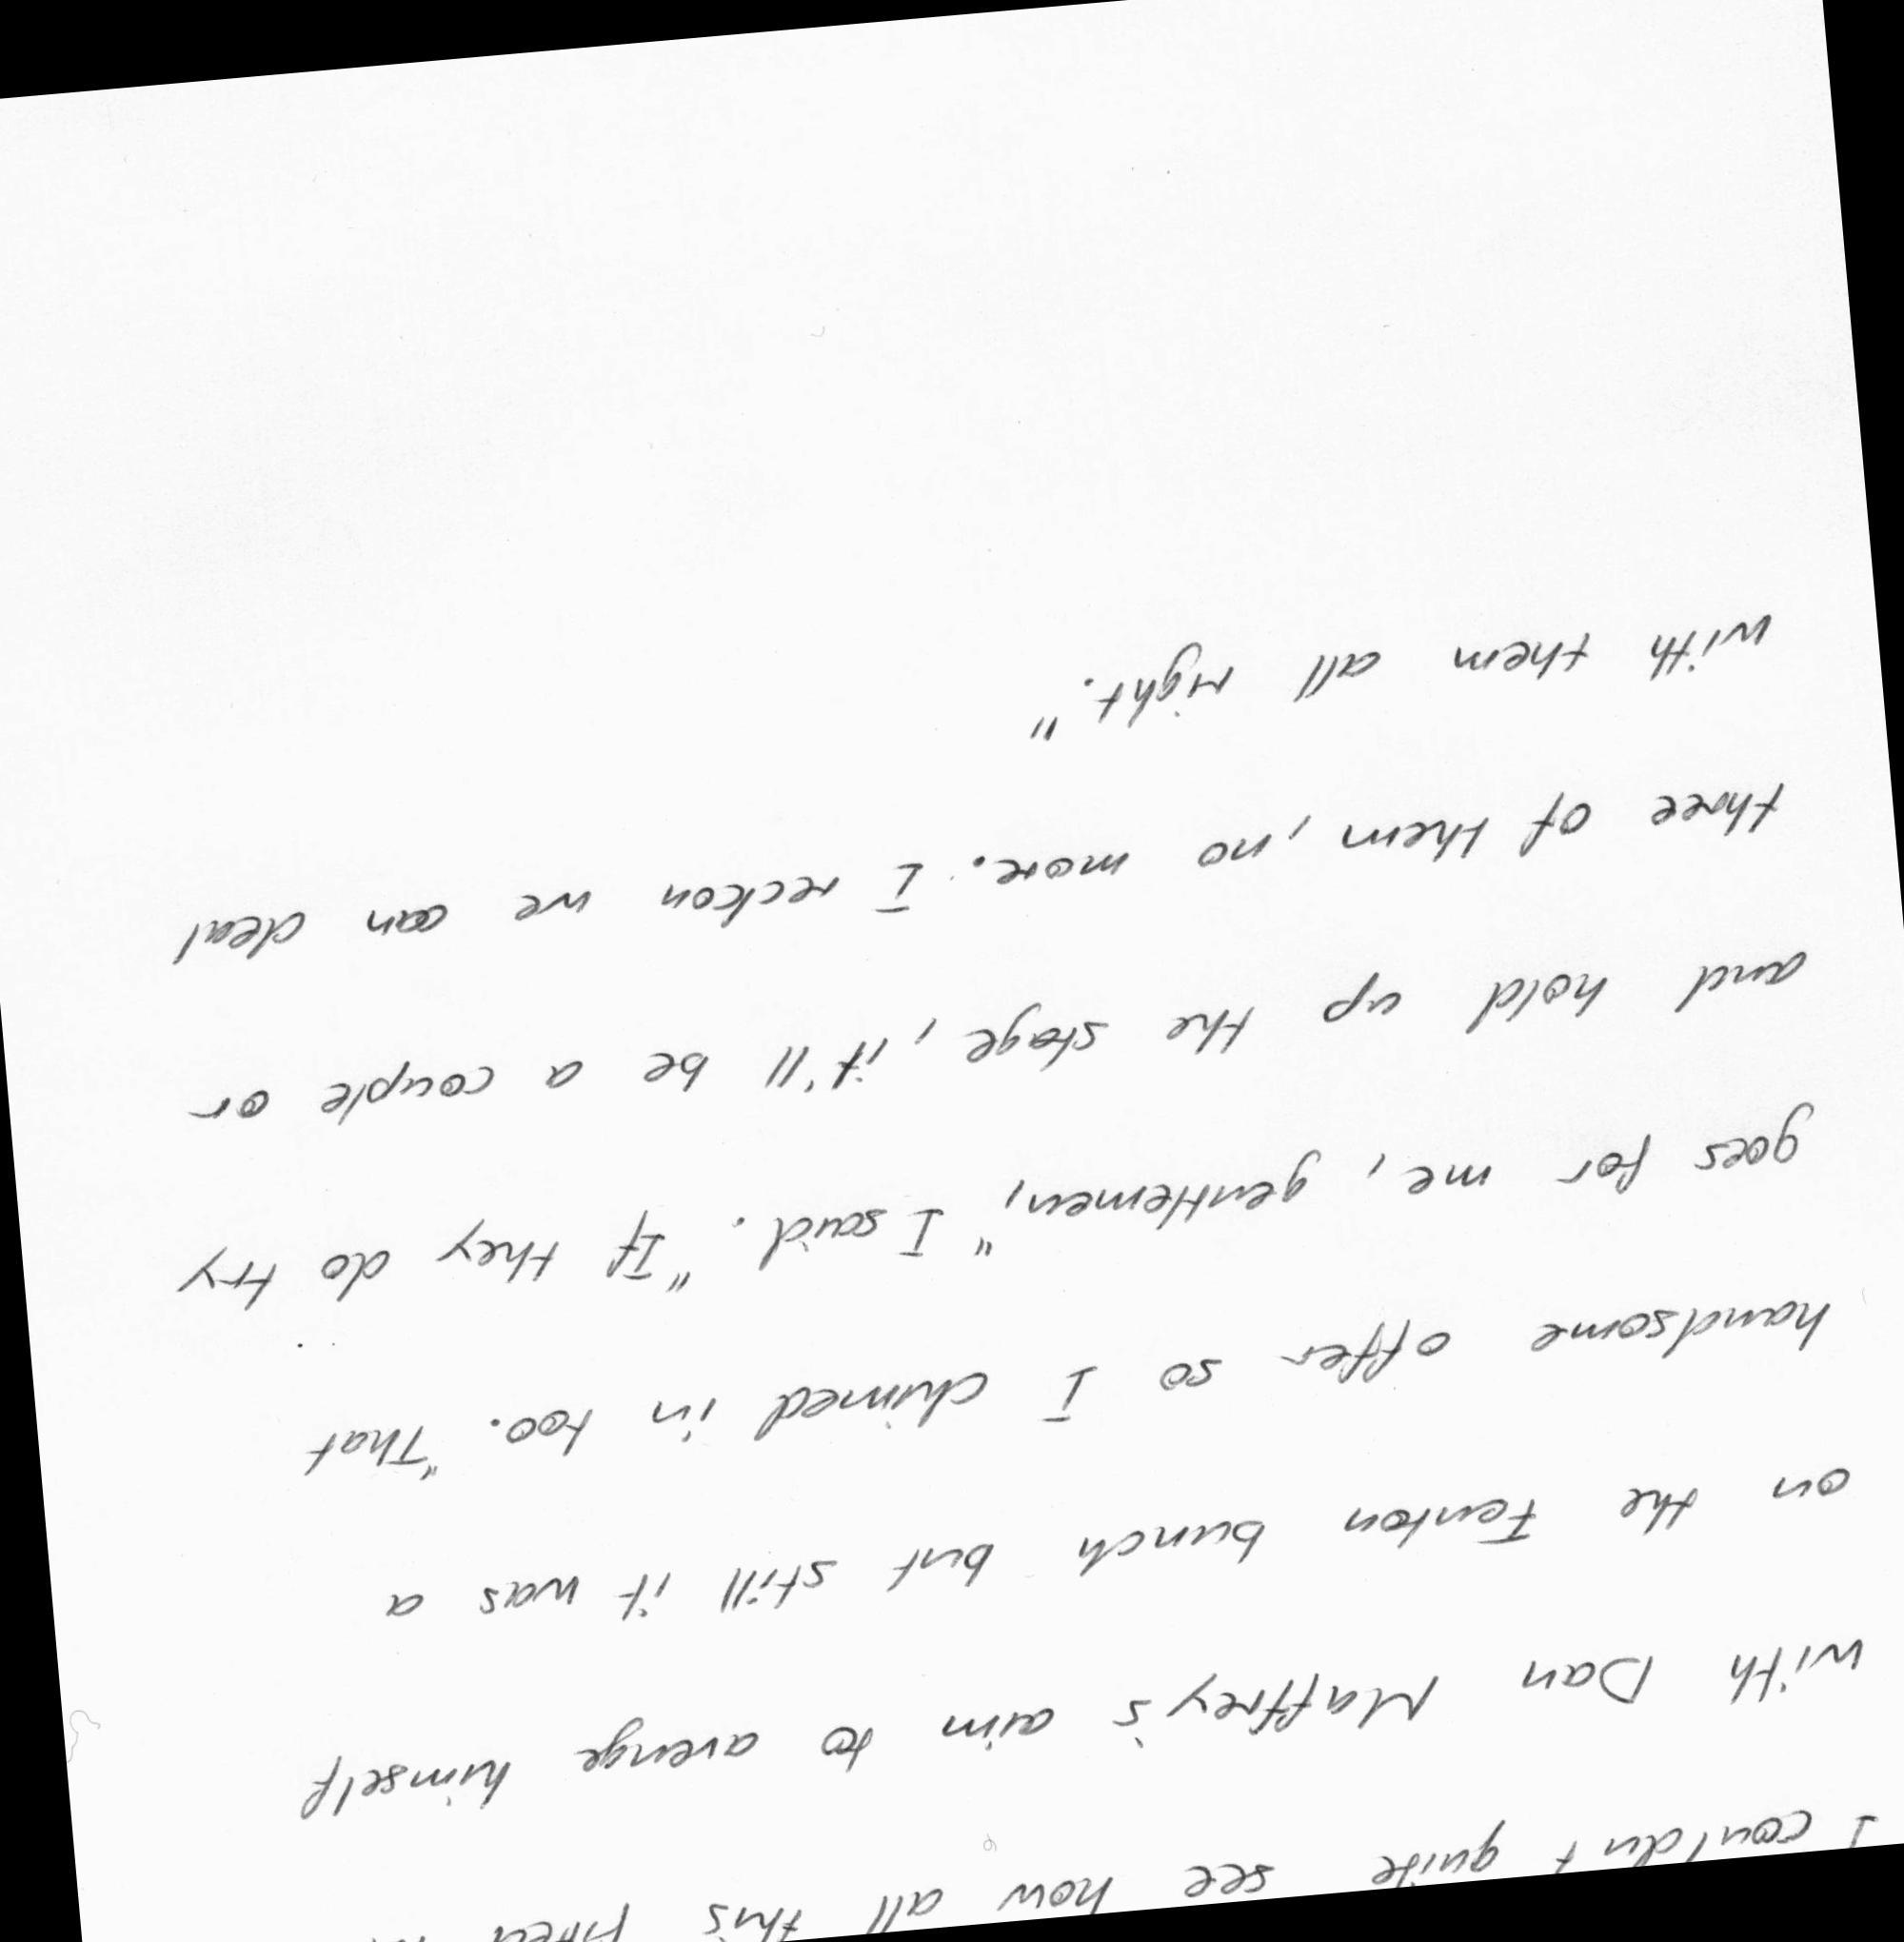 I couldn't quite see how all this fitted
with Dan Maffrey's aim to avenge himself
on the Fenton bunch but still it was a
handsome offer so I chimed in too. "That
goes for me, gentlemen," I said. "If they do try
and hold up the stage, it'll be a couple or
three of them, no more. I reckon we can deal
with them all right."